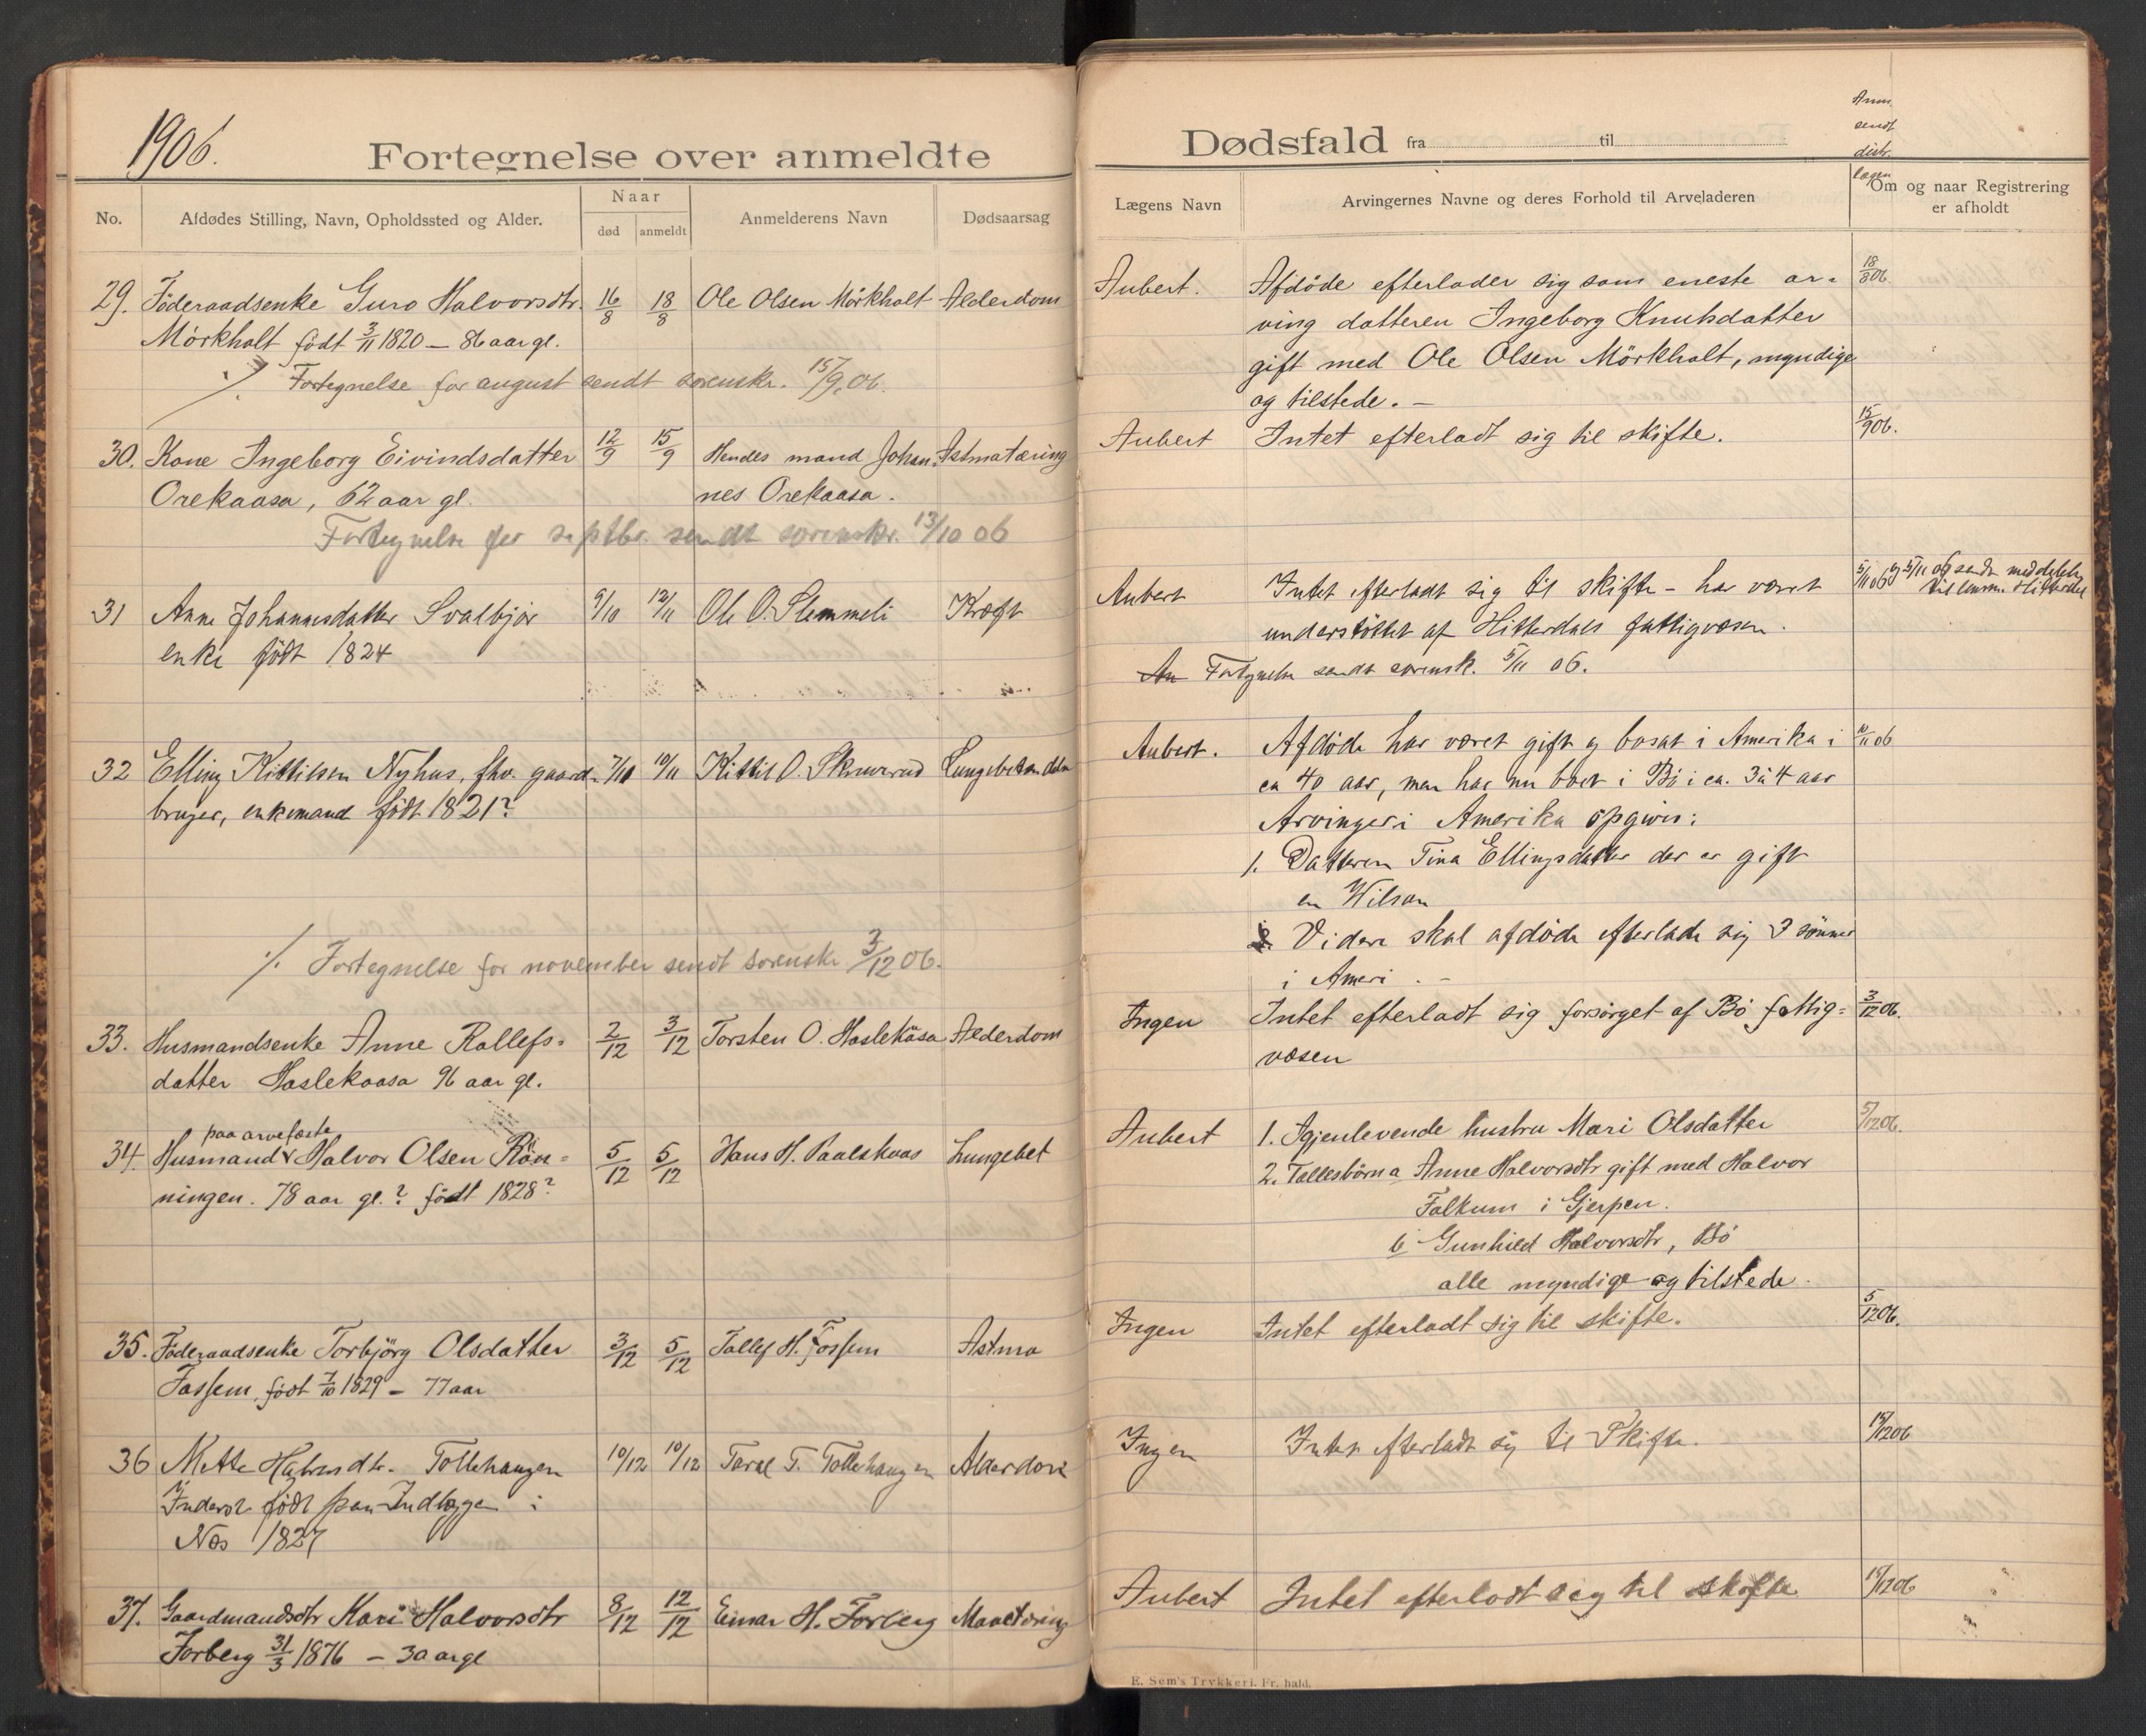 1906.
Fortegnelse over anmeldte
No.
Afdødes Stilling, Navn, Opholdssted og Alder.
Naar
død
anmeldt
Anmelderens Navn
Dødsaarsag
29. Föderaadsenke Guro Halvorsdtr. 16/8 18/8 Ole Olsen Mörkholt Alderdom
Mörkholt födt 3/11 1820 — 86 aar gl.
Fortegnelse for august sendt sorenskr. 15/9.06.
30. Kone Ingeborg Eivindsdatter 12/9 15/9 Hendes mand Johan- Astmatæring
Orekaasa, 62 aar gl. nes Orekaasa.
Fortegnelse for septbr. sendt sorenskr. 13/10 06
31 Anne Johannesdatter Svalbjör 9/10 12/11 Ole O. Slemmeli Kræft
enke födt 1824
32 Elling Kittilsen Nyhus, fhv. gaard- 7/10 10/11 Kittil O. Skruverud Lungebetændelse
bruger, enkemand födt 1821?
./. Fortegnelse for november sendt sorenskr 3/12 06.
33. Husmandsenke Anne Rollefs- 2/12 3/12 Torsten O. Haslekåsa Alderdom
datter Haslekaasa 96 aar gl.
paa arvefæste
34. Husmand Halvor Olsen Rön- 5/12 5/12 Hans H. Paalskaas Lungebet
ningen. 78 aar gl.? födt 1828?
35. Föderaadsenke Torbjörg Olsdatter 3/12 5/12 Tollef H. Fossem Astma
Fossem, födt 7/10 1829 — 77 aar
36 Mette Halvorsdtr. Tollehaugen 10/12 10/12 Taral T. Tollehaugen Alderdom
Inderst födt paa Indlæggen i
Nes 1827
37. Gaardmandsdtr Kari Halvorsdtr 8/12 12/12 Einar H. Forberg Mavetæring
Forberg 31/3 1876 — 30 aar gl
Dødsfald fra til
Anm.
sendt
distr.
lægen
Lægens Navn
Arvingernes Navne og deres Forhold til Arveladeren
Om og naar Registrering
er afholdt
Aubert. Afdöde efterlader sig som eneste ar- 18/8 06
ving datteren Ingeborg Knutsdatter
gift med Ole Olsen Mörkholt, myndige
og tilstede. —
Aubert Intet efterladt sig til skifte. 15/9 06.
Aubert Intet efterladt sig til skifte — har været 5/11 06 5/11 06 sendt meddelelse
understöttet af Hitterdals fattigvæsen. til lensm. Hitterdal
Fortegnelse sendt sorensk. 5/11 06.
Aubert. Afdöde har været gift og bosat i Amerika i 06
ca 40 aar, men har nu boet i Bö i ca. 3 à 4 aar
Arvinger i Amerika opgives:
1. Datteren Tina Ellingsdatter der er gift
en Wilson
Videre skal afdöde efterlade sig 3 sönner
i Ameri . —
Ingen Intet efterladt sig forsörget af Bö fattig- 3/12 06.
væsen
Aubert 1. Igjenlevende hustru Mari Olsdatter 5/12 06.
2. Fællesbörn a Anne Halvorsdtr gift med Halvor
Falkum i Gjerpen.
b Gunhild Halvorsdtr, Bö
alle myndige og tilstede.
Ingen Intet efterladt sig til skifte. 5/12 06.
Ingen Intet efterladt sig til Skifte. 15/12 06
Aubert Intet efterladt seg til skifte 15/12 06
E. Sem's Trykkeri, Fr. hald.